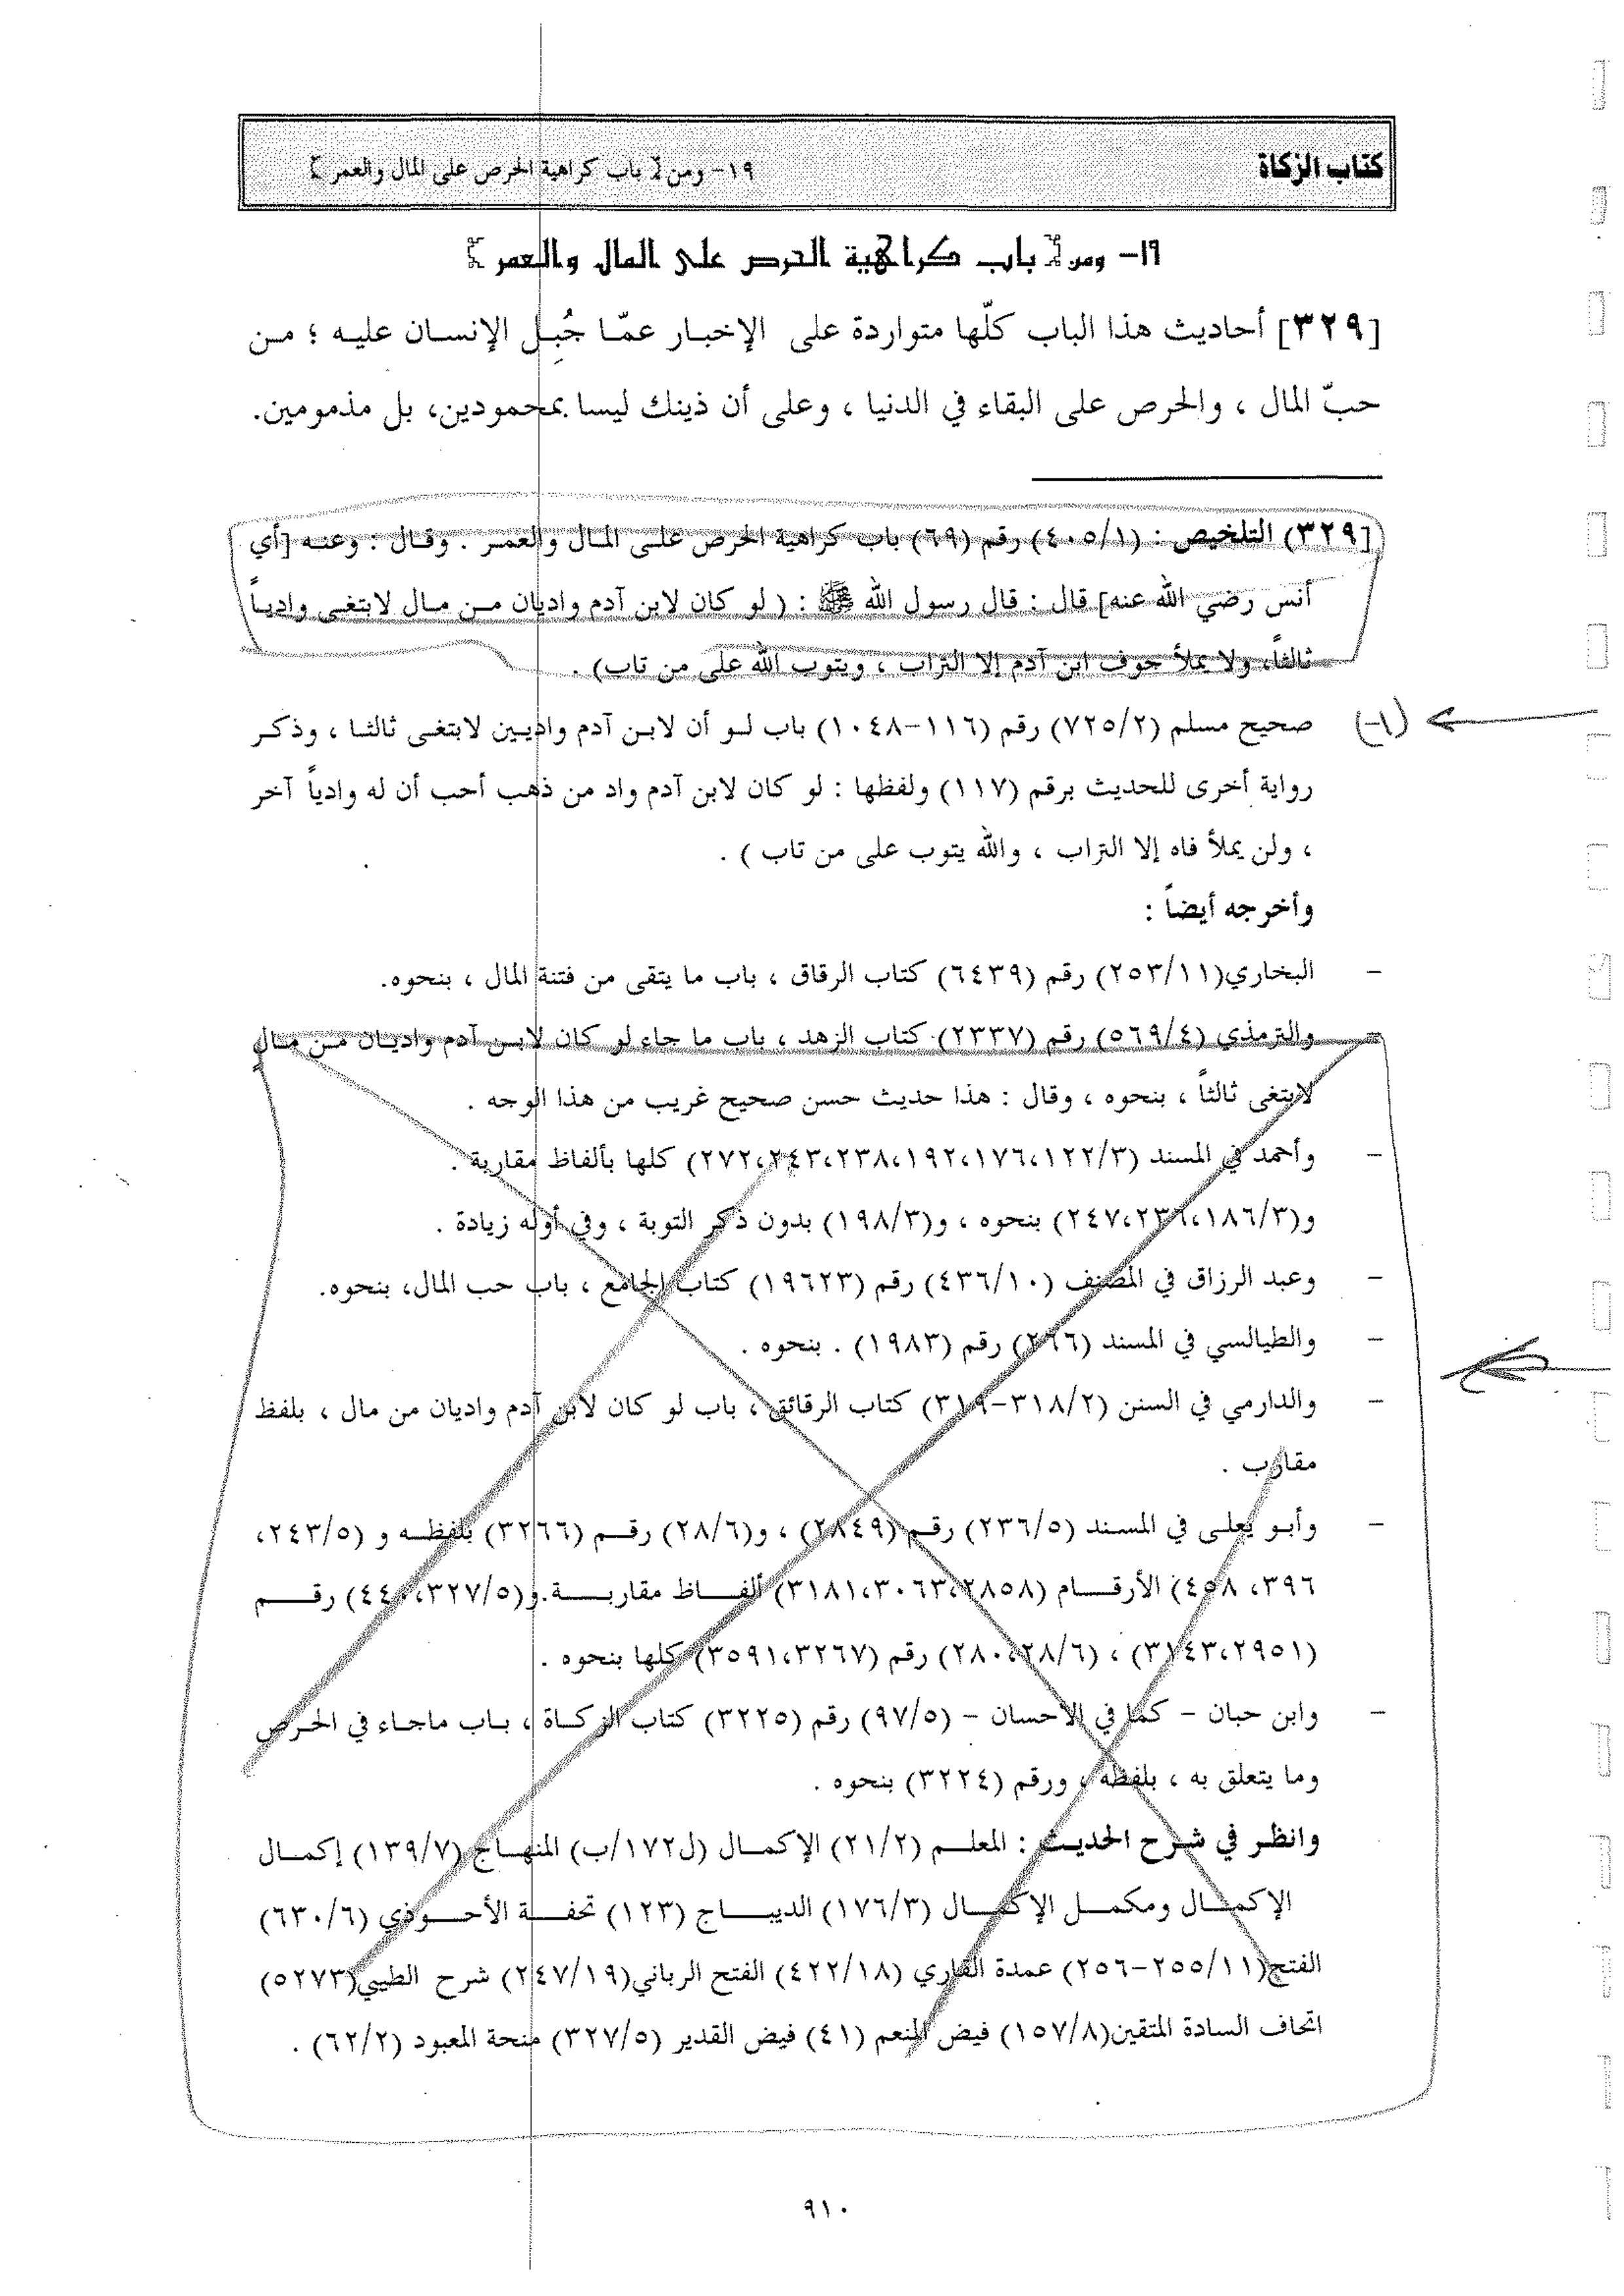 كتاب الزكاة
١٩- ومن { باب كراهية الحرص على المال والعمر }
١٩- ومن { باب كراهية الحرص على المال والعمر }
[٣٢٩] أحاديث هذا الباب كلّها متواردة على الإخبار عمّا جُبِل الإنسان عليه ؛ من
حبّ المال ، والحرص على البقاء في الدنيا ، وعلى أن ذينك ليسا بمحمودين، بل مذمومين.
[٣٢٩) التلخيص : (٤٠٥/١) رقم (٦٩) باب كراهية الحرص على المال والعمر . وقال : وعنه [أي
أنس رضي الله عنه] قال : قال رسول الله ﷺ : ( لو كان لابن آدم واديان من مال لابتغى وادياً
ثالثاً، ولا يملأ جوف ابن آدم إلا التراب ، ويتوب الله على من تاب) .
(١-) صحيح مسلم (٧٢٥/٢) رقم (١١٦-١٠٤٨) باب لو أن لابن آدم واديين لابتغى ثالثا ، وذكر
رواية أخرى للحديث برقم (١١٧) ولفظها : لو كان لابن آدم واد من ذهب أحب أن له وادياً آخر
، ولن يملأ فاه إلا التراب ، والله يتوب على من تاب ) .
وأخرجه أيضاً :
- البخاري(٢٥٣/١١) رقم (٦٤٣٩) كتاب الرقاق ، باب ما يتقى من فتنة المال ، بنحوه.
- والترمذي (٥٦٩/٤) رقم (٢٣٣٧) كتاب الزهد ، باب ما جاء لو كان لابن آدم واديان من مال
لابتغى ثالثاً ، بنحوه ، وقال : هذا حديث حسن صحيح غريب من هذا الوجه .
- وأحمد في المسند (١٢٢/٣،١٧٦،١٩٢،٢٣٨،٢٤٣،٢٧٢) كلها بألفاظ مقاربة .
و(١٨٦/٣،٢٣٦،٢٤٧) بنحوه ، و(١٩٨/٣) بدون ذكر التوبة ، وفي أوله زيادة .
- وعبد الرزاق في المصنف (٤٣٦/١٠) رقم (١٩٦٢٣) كتاب الجامع ، باب حب المال، بنحوه.
- والطيالسي في المسند (٢٦٦) رقم (١٩٨٣) . بنحوه .
- والدارمي في السنن (٣١٨/٢-٣١٩) كتاب الرقائق ، باب لو كان لابن آدم واديان من مال ، بلفظ
مقارب .
- وأبو يعلى في المسند (٢٣٦/٥) رقم (٢٨٤٩) ، و(٢٨/٦) رقم (٣٢٦٦) بلفظه و (٢٤٣/٥،
٣٩٦، ٤٥٨) الأرقام (٢٨٥٨،٣٠٦٣،٣١٨١) ألفاظ مقاربة.و(٣٢٧/٥،٤٤٠) رقم
(٢٩٥١،٣١٤٣) ، (٢٨/٦،٢٨٠) رقم (٣٢٦٧،٣٥٩١) كلها بنحوه .
- وابن حبان - كما في الاحسان - (٩٧/٥) رقم (٣٢٢٥) كتاب الزكاة ، باب ماجاء في الحرص
وما يتعلق به ، بلفظه ، ورقم (٣٢٢٤) بنحوه .
وانظر في شرح الحديث : المعلم (٢١/٢) الإكمال (ل١٧٢/ب) المنهاج (١٣٩/٧) إكمال
الإكمال ومكمل الإكمال (١٧٦/٣) الديباج (١٢٣) تحفة الأحوذي (٦٣٠/٦)
الفتح(٢٥٥/١١-٢٥٦) عمدة القاري (٤٢٢/١٨) الفتح الرباني(٢٤٧/١٩) شرح الطيبي(٥٢٧٣)
اتحاف السادة المتقين(١٥٧/٨) فيض المنعم (٤١) فيض القدير (٣٢٧/٥) منحة المعبود (٦٢/٢) .
٩١٠